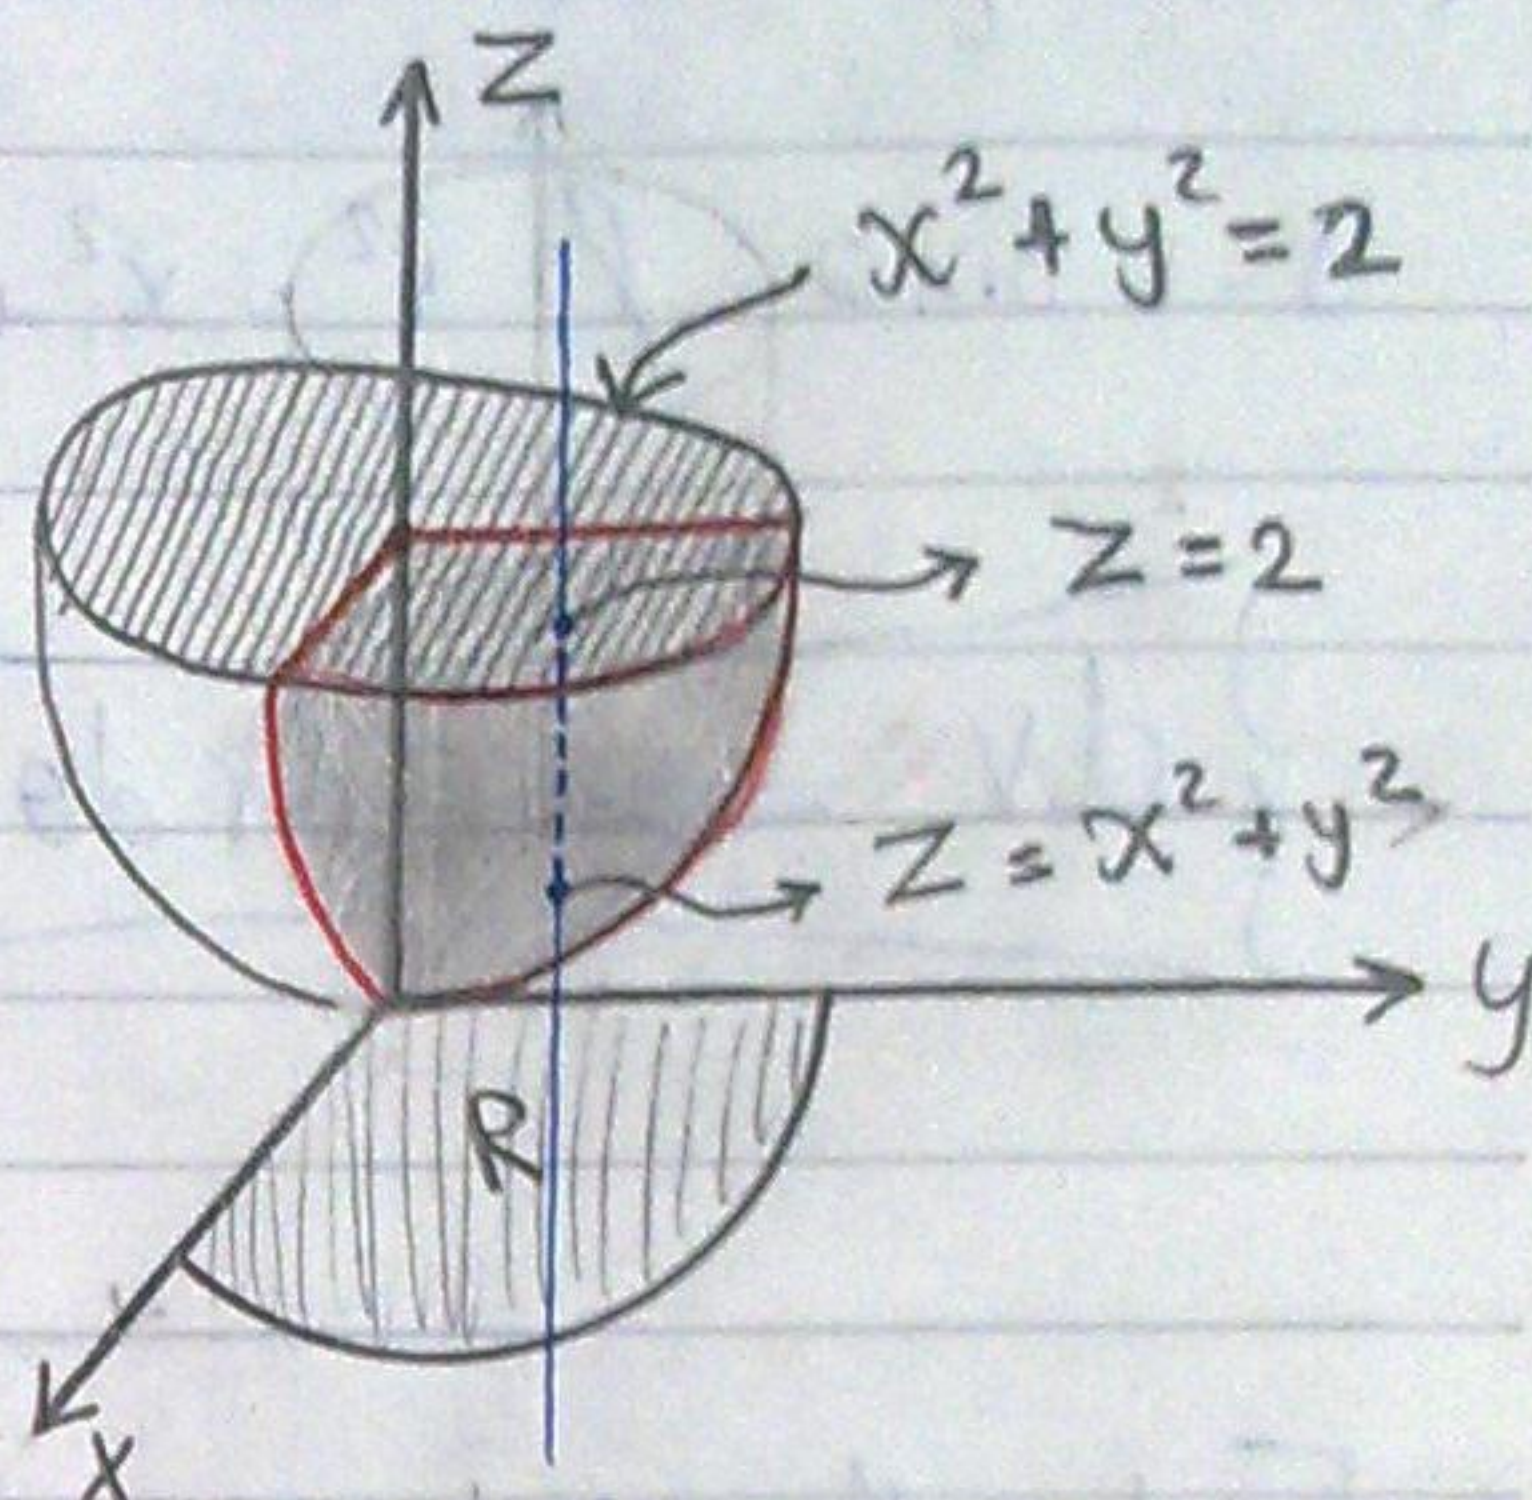 z
x² + y² = 2
z = 2
z = x² + y²
y
R
x